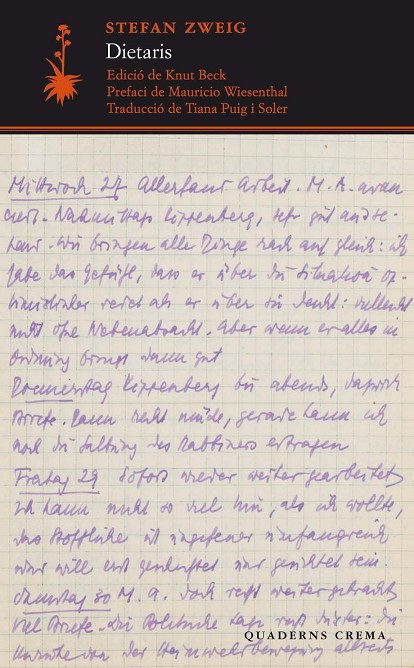 STEFAN ZWEIG
Dietaris
Edició de Knut Beck
Prefaci de Mauricio Wiesenthal
Traducció de Tiana Puig i Soler
Mittwoch 27 Allerhand Arbeit. M. A. avan
ciert. Nachmittags Kippenberg, sehr gut and
Wir bringen alle Dinge rasch auf gleich: ich
habe das Gefühl, dass er über die Situation op-
timistischer redet als er über sie denkt: vielleicht
nicht ohne Nebenabsicht. Aber wenn er alles in
Ordnung bringt dann gut
Donnerstag Kippenberg bis abends, dazwisch
Briefe. Dann recht müde, gerade kann ich
noch die des Rabbiners ertragen
Freitag 29 Sofort wieder weiter gearbeitet
Ich kann nicht so viel tun, als ich wollte,
das Stoffliche ist ungeheuer umfangreich
und will erst und gesichtet sein.
Samstag 30 M. A. doch recht weiter gebracht
Viel Briefe. Die Politische Lage düster: die
von der Heimwehrbewegung
QUADERNS CREMA